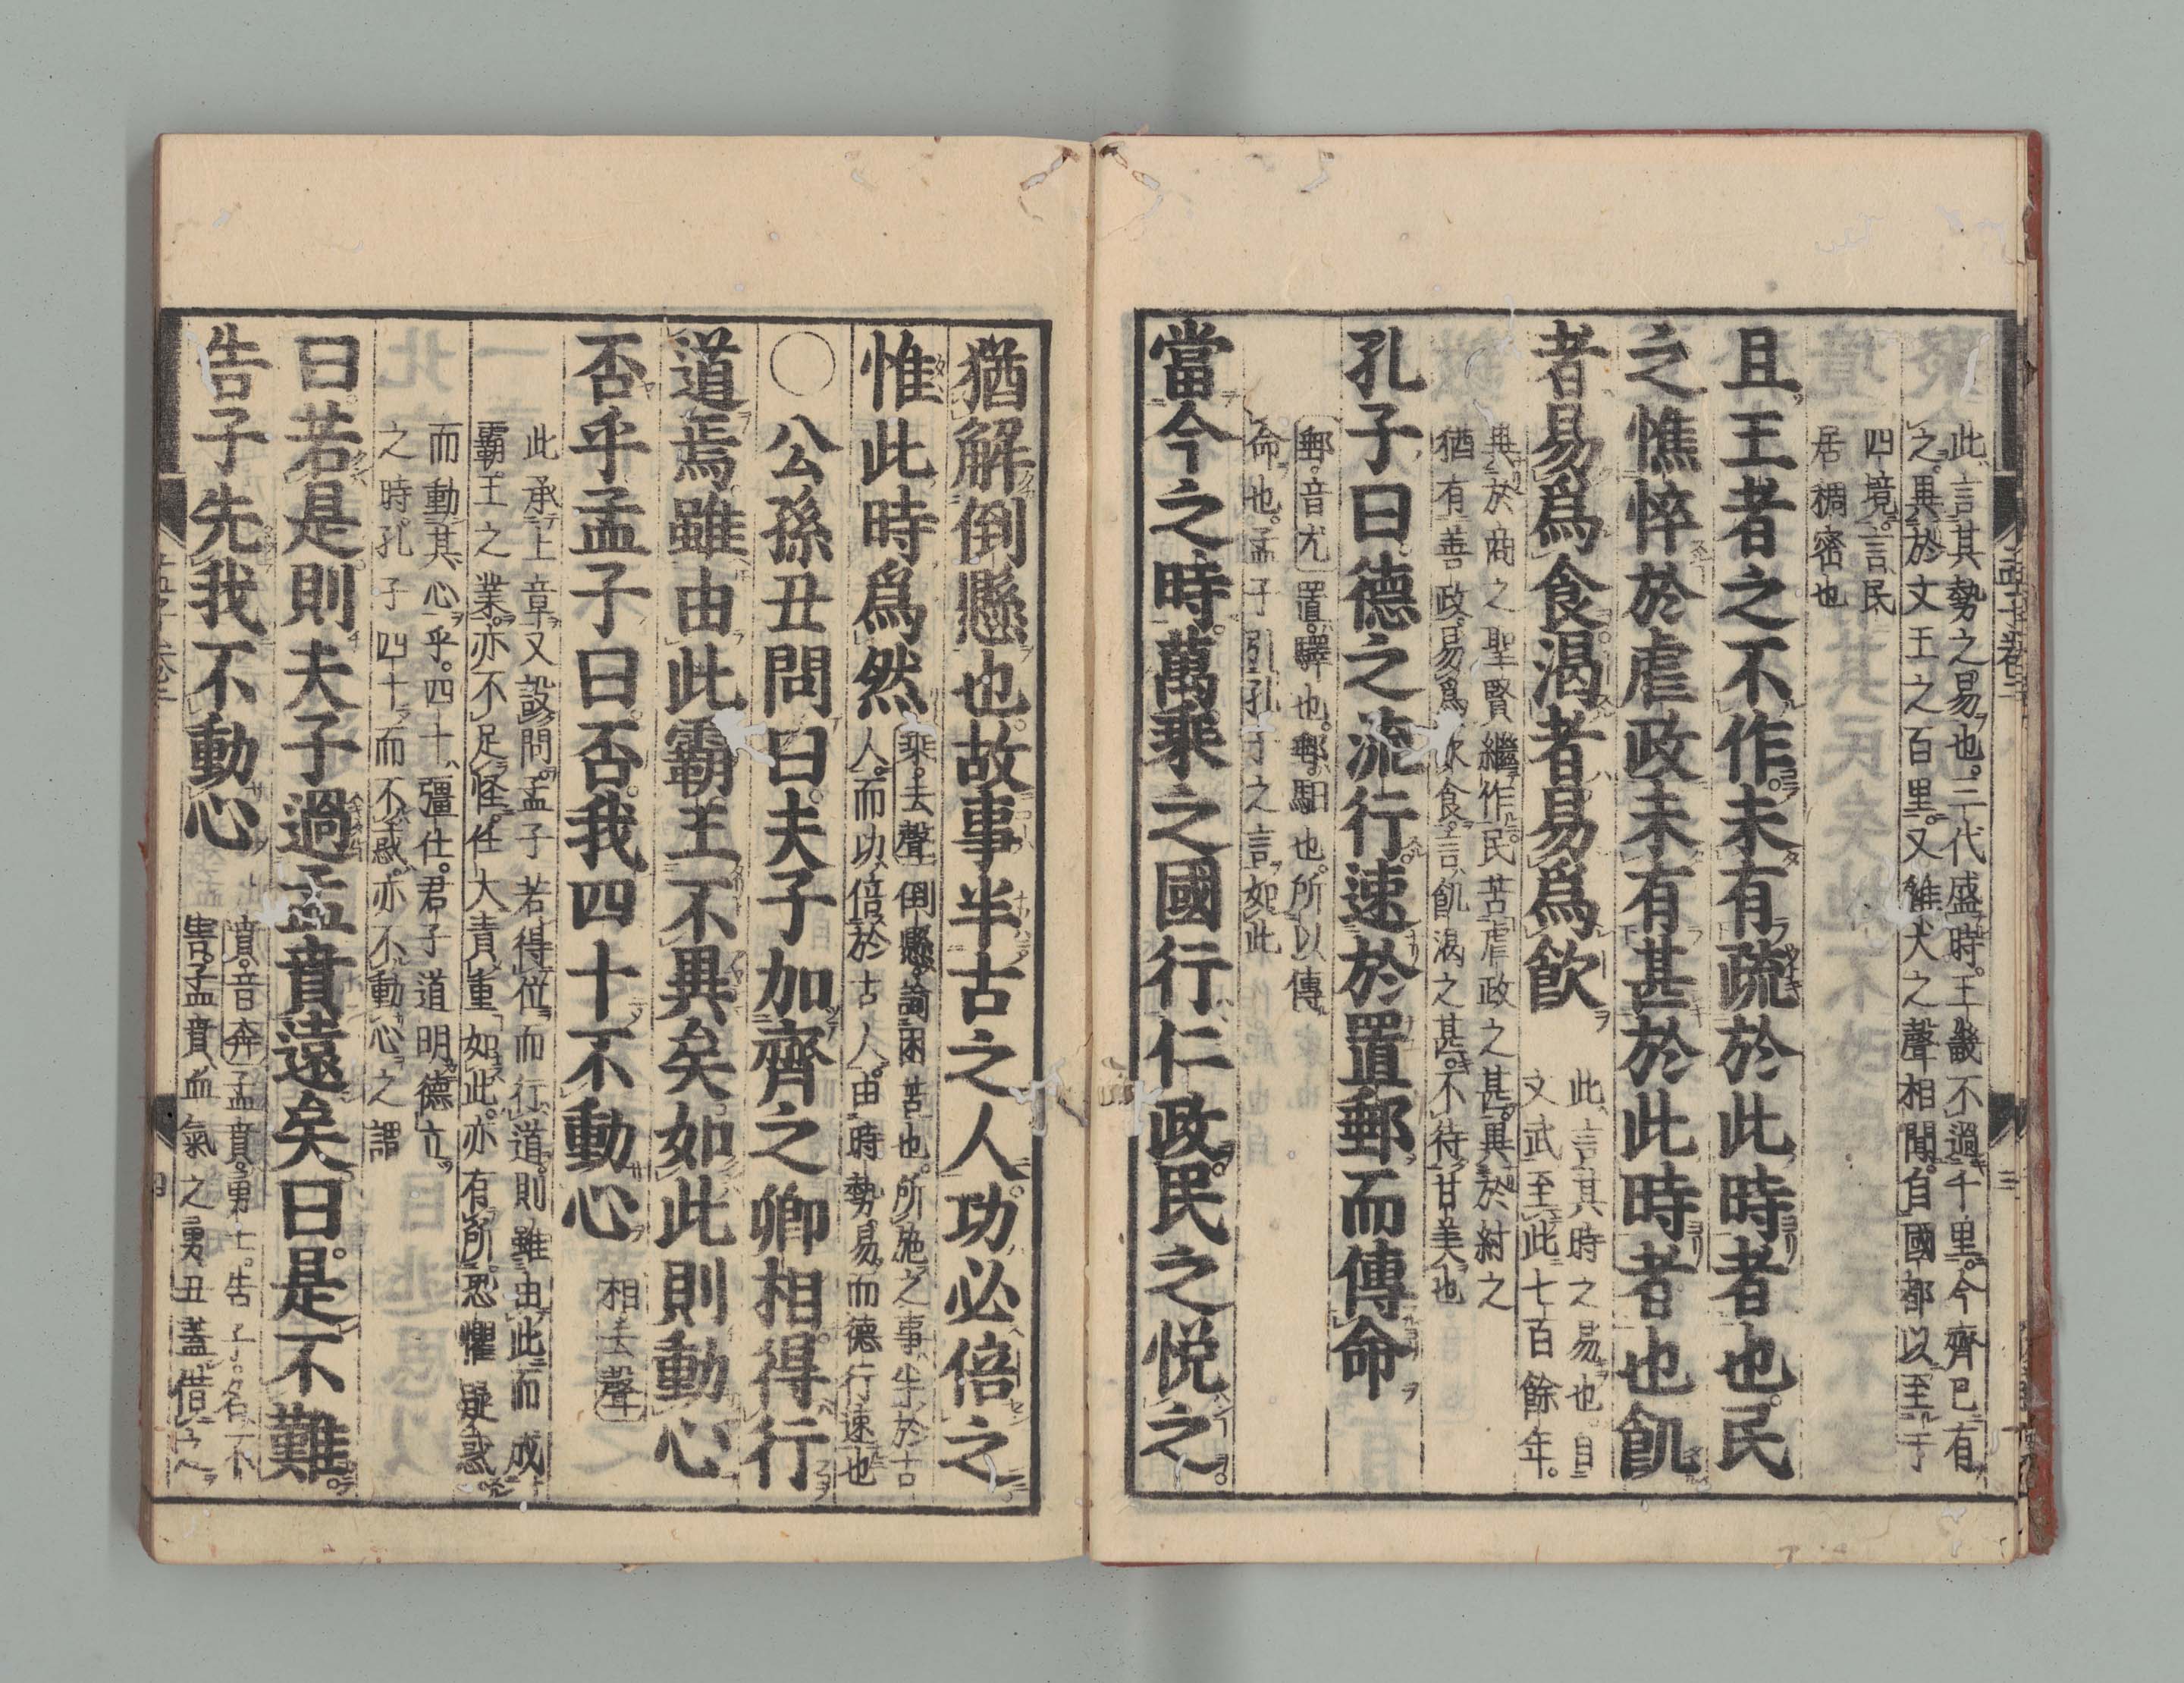 此言其勢之易也三代盛時王畿不過千里今齊已有
之異於文王之百里又雞犬之聲相聞自國都以至于
四境言民
居稠密也
且王者之不作未有疏於此時者也民
之憔悴於虐政未有甚於此時者也飢
者易爲食渴者易爲飲
此言其時之易也自
文武至此七百餘年
異於商之聖賢繼作民苦虐政之甚異於紂之
猶有善政易爲飲食言飢渴之甚不待甘美也
孔子曰德之流行速於置郵而傳命
郵音尤置驛也郵馹也所以傳
命也孟子引孔子之言如此
當今之時萬乘之國行仁政民之悅之
猶解倒懸也故事半古之人功必倍之
惟此時爲然
乘去聲倒懸諭困苦也所施之事半於古
人而功倍於古人由時勢易而德行速也
○公孫丑問曰夫子加齊之卿相得行
道焉雖由此霸王不異矣如此則動心
否乎孟子曰否我四十不動心
相去聲
此承上章又設問孟子若得位而行道則雖由此而成
霸王之業亦不足怪任大責重如此亦有所恐懼疑惑
而動其心乎四十彊仕君子道明德立
之時孔子四十而不惑亦不動心之謂
曰若是則夫子過孟賁遠矣曰是不難
告子先我不動心
賁音奔孟賁勇士告子名不
害孟賁血氣之勇丑蓋借之以